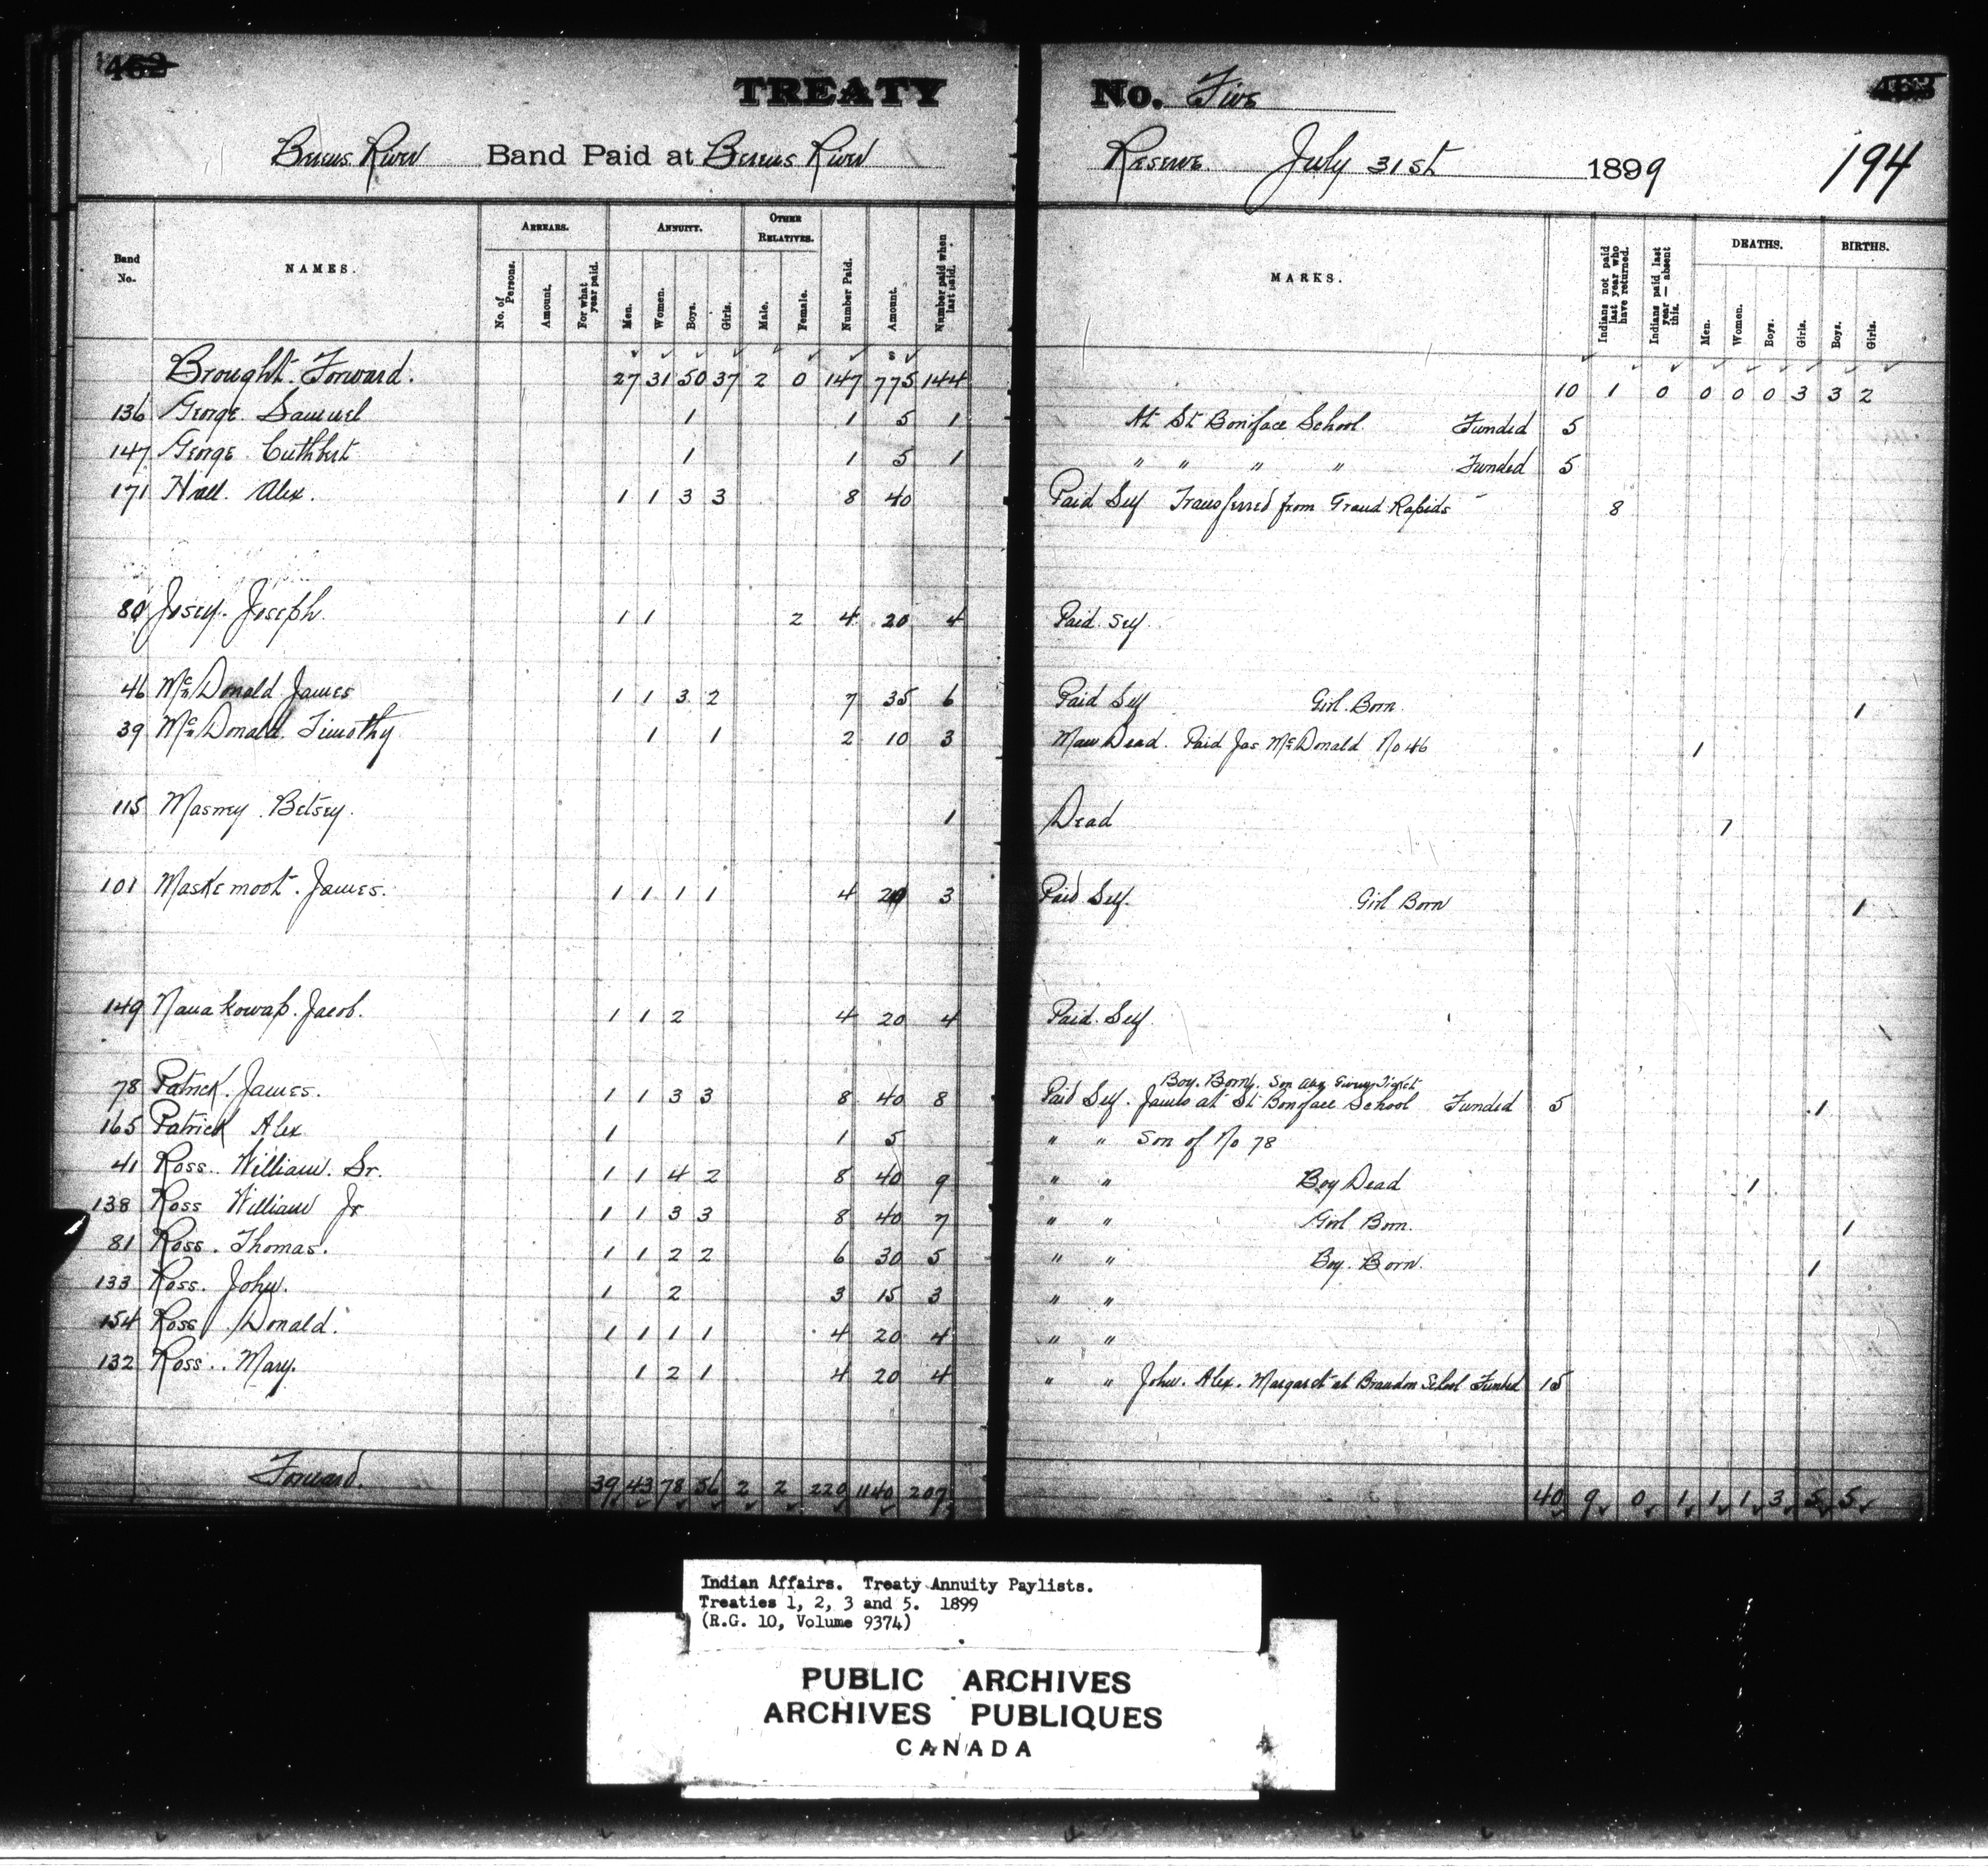 462
TREATY No. Five
463
Berens River Band Paid at Berens River Reserve July 31st 1899
194
Band No. NAMES. ARREARS. No. of Persons. Amount. For what year paid. ANNUITY. Men. Women. Boys. Girls. OTHER RELATIVES. Male. Female. Number Paid. Amount. Number paid when last paid. MARKS. Indians not paid last year who have returned. Indians paid last year — absent this. DEATHS. Men. Women. Boys. Girls. BIRTHS. Boys. Girls.
Brought Forward. 27 31 50 37 2 0 147 775 144 10 1 0 0 0 0 3 3 2
136 George Samuel 1 1 5 1 At St Boniface School Funded 5
147 George Cuthbert 1 1 5 1 " " " " Funded 5
171 Hall. Alex. 1 1 3 3 8 40 Paid Self Transferred from Grand Rapids 8
80 Josey. Joseph. 1 1 2 4 20 4 Paid Self.
46 McDonald James 1 1 3 2 7 35 6 Paid Self Girl Born. 1
39 McDonald. Timothy 1 1 2 10 3 Man Dead. Paid Jas McDonald No 46 1
115 Masney Betsey. 1 Dead 1
101 Maskemoot. James. 1 1 1 1 4 20 3 Paid Self. Girl Born 1
149 Nanakowap. Jacob. 1 1 2 4 20 4 Paid Self.
Boy. Born. Son Alex Given Ticket
78 Patrick. James. 1 1 3 3 8 40 8 Paid Self. James at St Boniface School Funded 5 1
165 Patrick Alex 1 1 5 " " Son of No 78
41 Ross. William. Sr. 1 1 4 2 8 40 9 " " Boy Dead 1
138 Ross William Jr 1 1 3 3 8 40 7 " " Girl Born. 1
81 Ross. Thomas. 1 1 2 2 6 30 5 " " Boy. Born. 1
133 Ross. John. 1 2 3 15 3 " "
154 Ross Donald. 1 1 1 1 4 20 4 " "
132 Ross.. Mary. 1 2 1 4 20 4 " " John. Alex. Margaret at Brandon School Funded 15
Forward. 39 43 78 56 2 2 220 1140 207 40 9 0 1 1 1 3 5 5
Indian Affairs. Treaty Annuity Paylists.
Treaties 1, 2, 3 and 5. 1899
(R.G. 10, Volume 9374)
PUBLIC ARCHIVES
ARCHIVES PUBLIQUES
CANADA